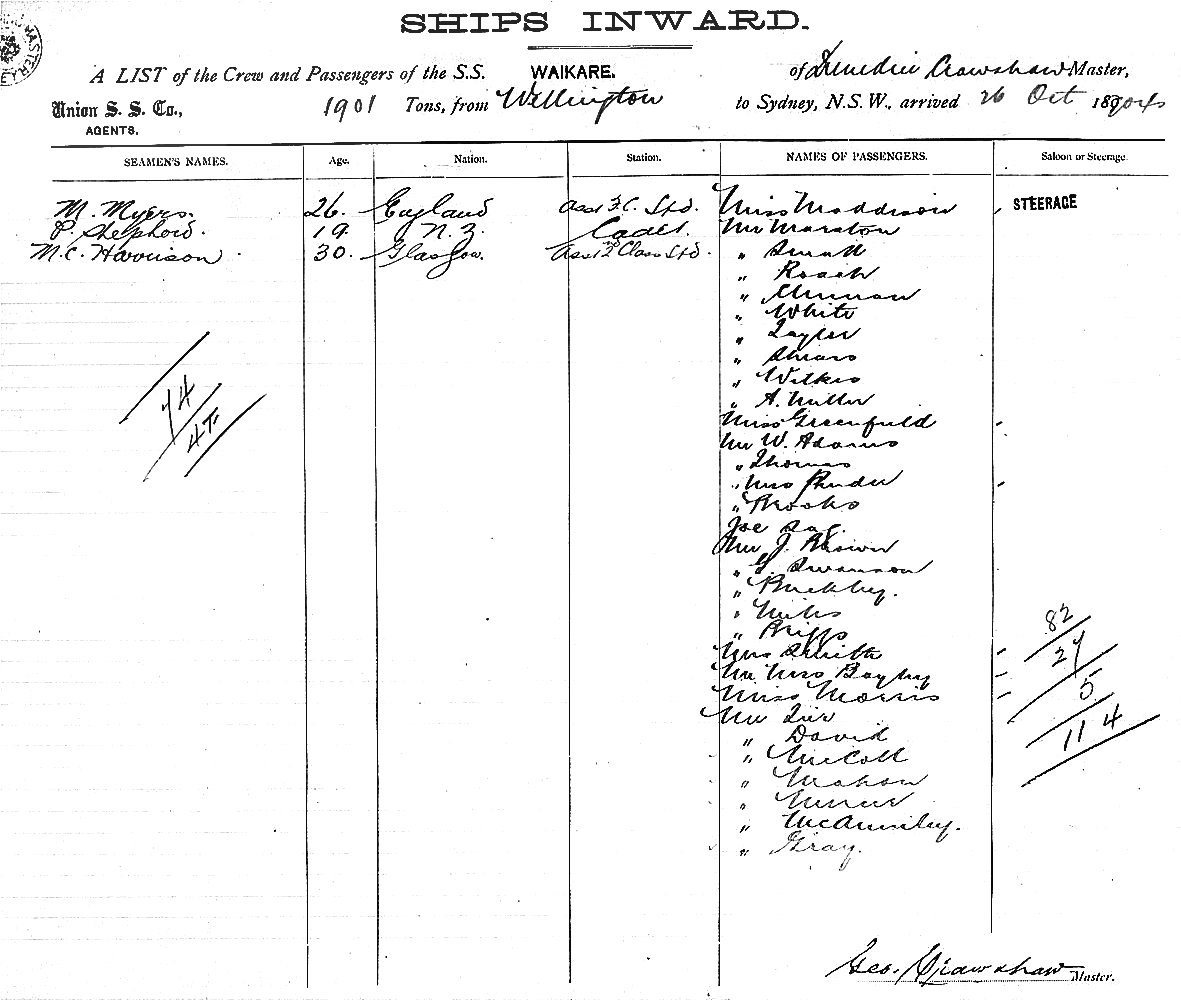 SHIPS INWARD.
A LIST of the Crew and Passengers of the S.S. WAIKARE. of Dunedin Crawshaw Master,
Union S. S. Co., 1901 Tons, from Wellington to Sydney, N.S.W., arrived 26 Oct 1890
AGENTS.
SEAMEN'S NAMES. Age. Nation. Station. NAMES OF PASSENGERS. Saloon or Steerage.
M. Myers. 26. England Asst 3.C. Std. Miss Maddison , STEERAGE
P. Shepherd. 19. N.Z. Cadet. Mr Marston
M.C. Harrison 30. Glasgow. Asst 2nd Class Std. " Small
" Roach
"
" White
" Taylor
" Shears
" Wilkes
" A. Miller
Miss Greenfield
Mr W. Adams
" Thomas
" Miss
" Brooks
Joe
Mr J. Brown
" G. Swanson
" Buckley.
" Miles
" Briggs
Mrs Smith
Mr Mrs Bayley
Miss Morris
Mr
" David
" McColl
" Mahon
"
"
" Gray.
74
45
82
27
5
114
Geo. Crawshaw Master.